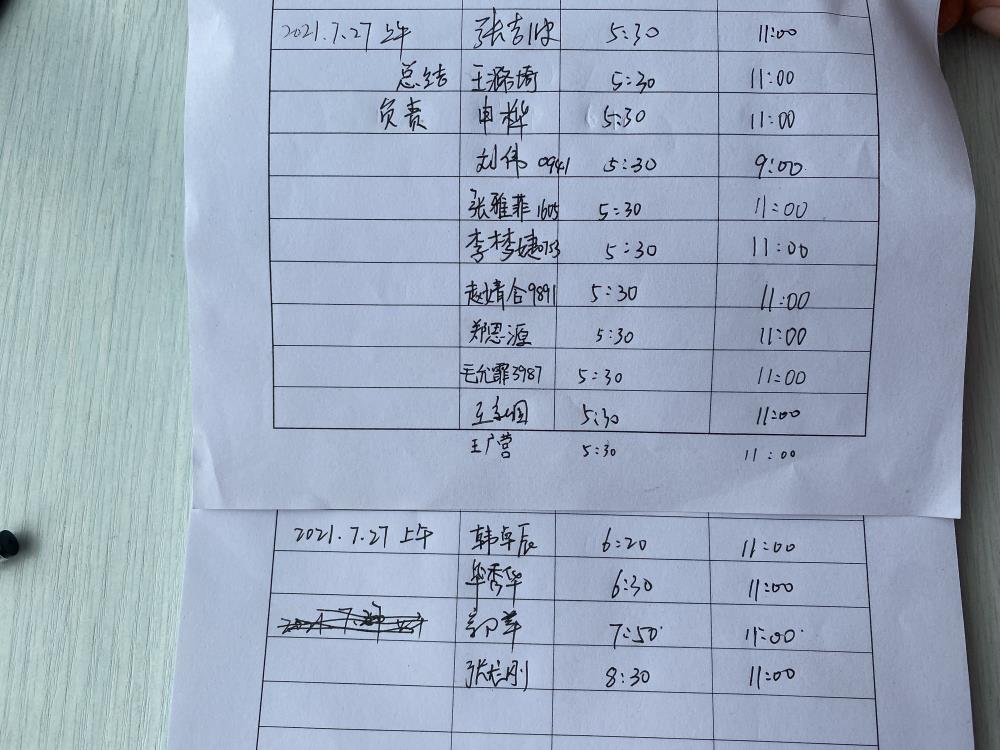 2021.7.27 上午 张吉咏 5:30 11:00
总结 王潞琦 5:30 11:00
负责 申桦 5:30 11:00
刘伟 0941 5:30 9:00
张雅菲 1605 5:30 11:00
李梦婕0753 5:30 11:00
赵婧含9891 5:30 11:00
郑思源 5:30 11:00
毛允霏3987 5:30 11:00
王 5:30 11:00
王广营 5:30 11:00
2021.7.27 上午 韩卓辰 6:20 11:00
毕秀华 6:30 11:00
7:50 11:00
张 刚 8:30 11:00